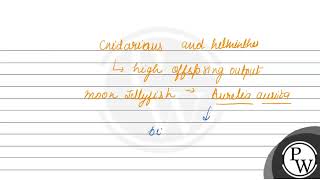 Cnidarians and helminths
↳ high offspring output
moon Jellyfish → Aurelia aurita
↓
bi
PW